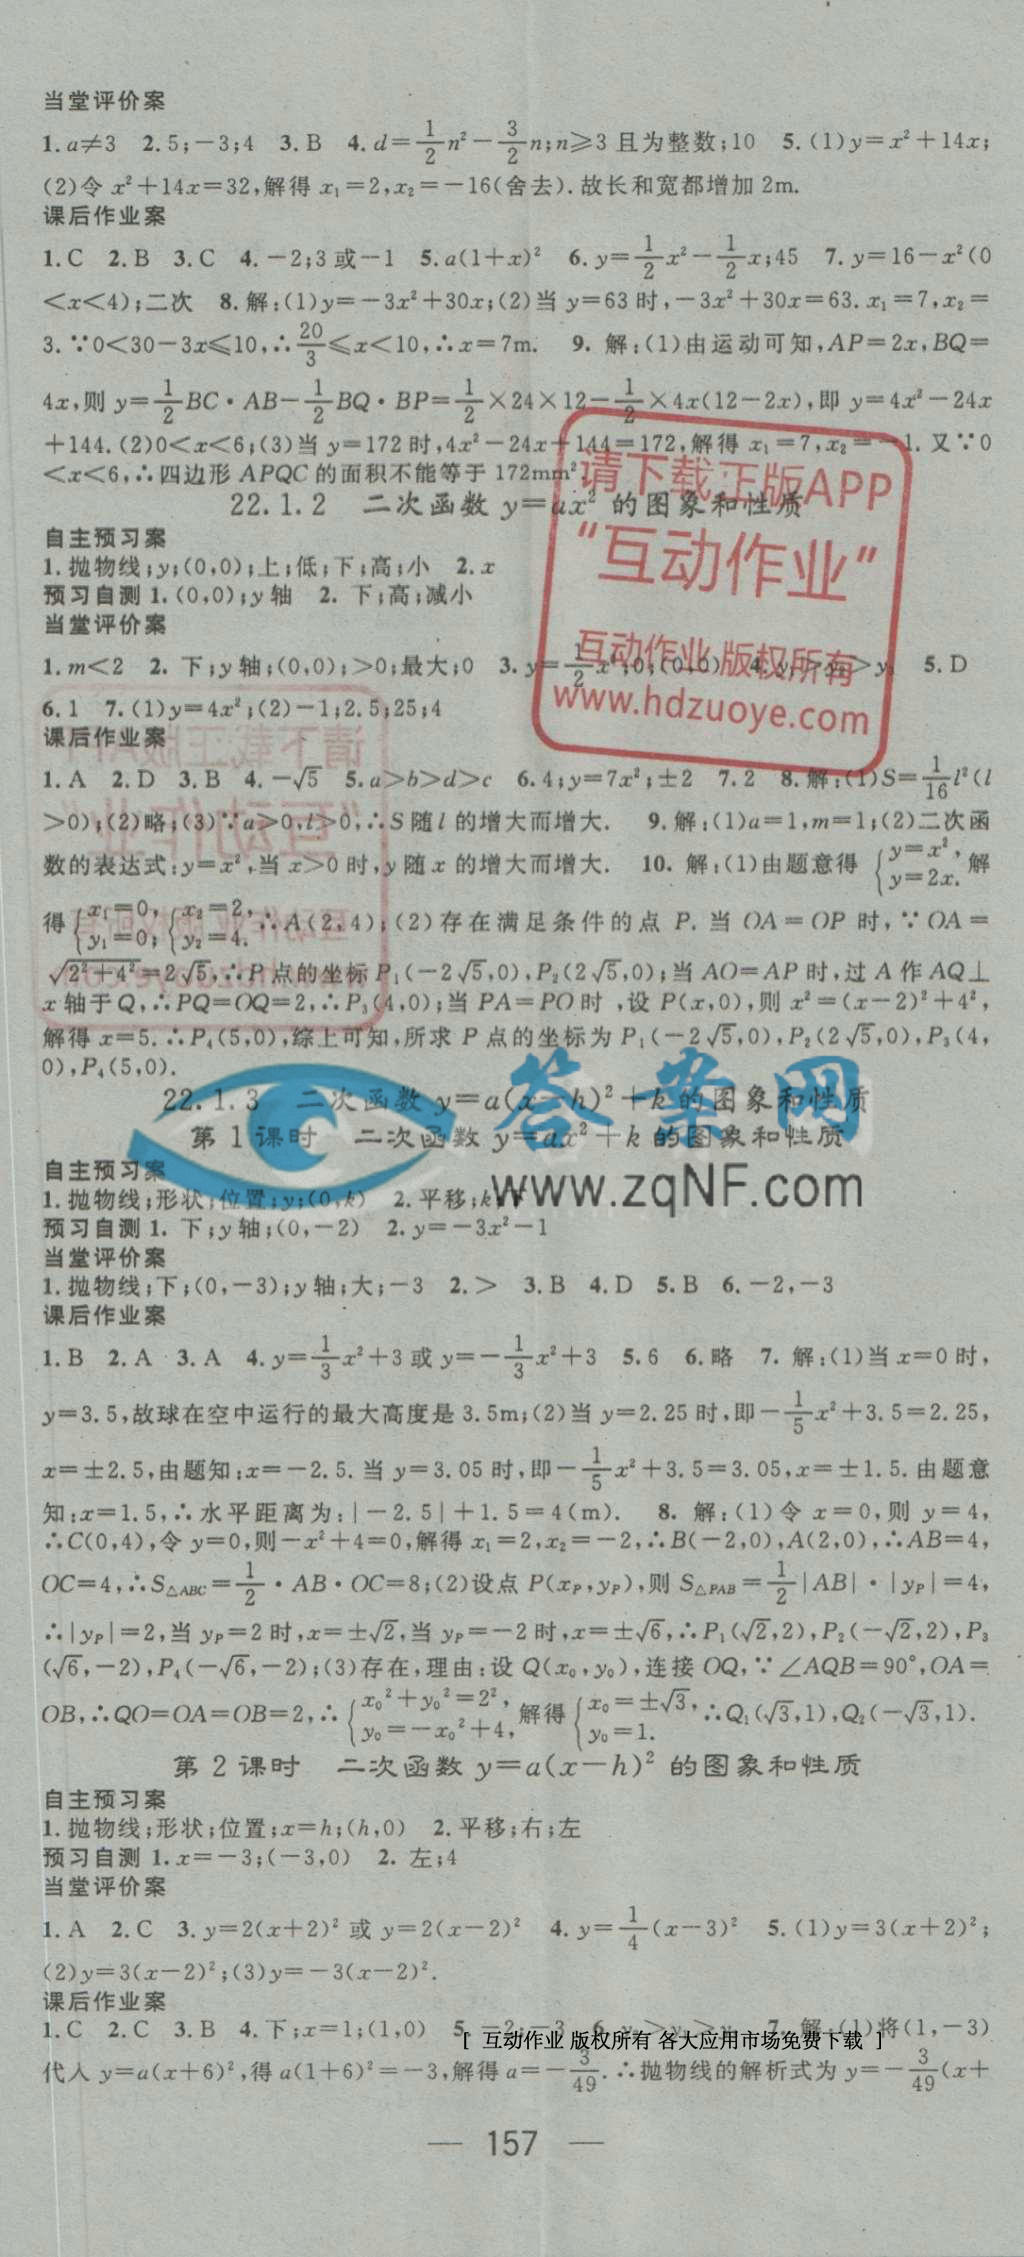 当堂评价案
1. a≠3 2. 5;−3;4 3. B 4. d=1/2n²−3/2n;n⩾3 且为整数;10 5. (1)y=x²+14x;
(2)令 x²+14x=32,解得 x₁=2,x₂=−16(舍去). 故长和宽都增加 2m.
课后作业案
1. C 2. B 3. C 4. −2;3 或−1 5. a(1+x)² 6. y=1/2x²−1/2x;45 7. y=16−x²(0
<x<4);二次 8. 解:(1)y=−3x²+30x;(2)当 y=63 时,−3x²+30x=63. x₁=7,x₂=
3. ∵0<30−3x⩽10,∴20/3⩽x<10,∴x=7m. 9. 解:(1)由运动可知,AP=2x,BQ=
4x,则 y=1/2BC·AB−1/2BQ·BP=1/2×24×12−1/2×4x(12−2x),即 y=4x²−24x
+144. (2)0<x<6;(3)当 y=172 时,4x²−24x+144=172,解得 x₁=7,x₂=−1. 又∵0
<x<6,∴四边形 APQC 的面积不能等于 172mm²
22.1.2 二次函数 y=ax² 的图象和性质
自主预习案
1. 抛物线;y;(0,0);上;低;下;高;小 2. x
预习自测 1. (0,0);y 轴 2. 下;高;减小
当堂评价案
1. m<2 2. 下;y 轴;(0,0);>0;最大;0 3. y=1/2x²;0;(0,0) 4. y >y >y 5. D
6. 1 7. (1)y=4x²;(2)−1;2.5;25;4
课后作业案
1. A 2. D 3. B 4. −√5 5. a>b>d>c 6. 4;y=7x²;±2 7. 2 8. 解:(1)S=1/16l²(l
>0);(2)略;(3)∵a>0,l>0,∴S 随 l 的增大而增大. 9. 解:(1)a=1,m=1;(2)二次函
数的表达式:y=x²,当 x>0 时,y 随 x 的增大而增大. 10. 解:(1)由题意得 {y=x², y=2x. 解
得{x₁=0, y₁=0; {x₂=2, y₂=4. ∴A(2,4);(2)存在满足条件的点 P. 当 OA=OP 时,∵OA=
√2²+4²=2√5,∴P 点的坐标 P₁(−2√5,0),P₂(2√5,0);当 AO=AP 时,过 A 作 AQ⊥
x 轴于 Q,∴PQ=OQ=2,∴P₃(4,0);当 PA=PO 时,设 P(x,0),则 x²=(x−2)²+4²,
解得 x=5. ∴P₄(5,0),综上可知,所求 P 点的坐标为 P₁(−2√5,0),P₂(2√5,0),P₃(4,
0),P₄(5,0).
22.1.3 二次函数 y=a(x−h)²+k 的图象和性质
第 1 课时 二次函数 y=ax²+k 的图象和性质
自主预习案
1. 抛物线;形状;位置;y;(0,k) 2. 平移;k
预习自测 1. 下;y 轴;(0,−2) 2. y=−3x²−1
当堂评价案
1. 抛物线;下;(0,−3);y 轴;大;−3 2. > 3. B 4. D 5. B 6. −2,−3
课后作业案
1. B 2. A 3. A 4. y=1/3x²+3 或 y=−1/3x²+3 5. 6 6. 略 7. 解:(1)当 x=0 时,
y=3.5,故球在空中运行的最大高度是 3.5m;(2)当 y=2.25 时,即−1/5x²+3.5=2.25,
x=±2.5,由题知:x=−2.5. 当 y=3.05 时,即−1/5x²+3.5=3.05,x=±1.5. 由题意
知:x=1.5,∴水平距离为:|−2.5|+1.5=4(m). 8. 解:(1)令 x=0,则 y=4,
∴C(0,4),令 y=0,则−x²+4=0,解得 x₁=2,x₂=−2,∴B(−2,0),A(2,0),∴AB=4,
OC=4,∴S△ABC=1/2·AB·OC=8;(2)设点 P(xP,yP),则 S△PAB=1/2|AB|·|yP|=4,
∴|yP|=2,当 yP=2 时,x=±√2,当 yP=−2 时,x=±√6,∴P₁(√2,2),P₂(−√2,2),P₃
(√6,−2),P₄(−√6,−2);(3)存在,理由:设 Q(x₀,y₀),连接 OQ,∵∠AQB=90°,OA=
OB,∴QO=OA=OB=2,∴{x₀²+y₀²=2², y₀=−x₀²+4, 解得{x₀=±√3, y₀=1. ∴Q₁(√3,1),Q₂(−√3,1).
第 2 课时 二次函数 y=a(x−h)² 的图象和性质
自主预习案
1. 抛物线;形状;位置;x=h;(h,0) 2. 平移;右;左
预习自测 1. x=−3;(−3,0) 2. 左;4
当堂评价案
1. A 2. C 3. y=2(x+2)² 或 y=2(x−2)² 4. y=1/4(x−3)² 5. (1)y=3(x+2)²;
(2)y=3(x−2)²;(3)y=−3(x−2)².
课后作业案
1. C 2. C 3. B 4. 下;x=1;(1,0) 5. −2;−3 6. y >y >y 7. 解:(1)将(1,−3)
代入 y=a(x+6)²,得 a(1+6)²=−3,解得 a=−3/49. ∴抛物线的解析式为 y=−3/49(x+
— 157 —
请下载正版APP
“互动作业”
互动作业 版权所有
www.hdzuoye.com
答案网
www.zqNF.com
[ 互动作业 版权所有 各大应用市场免费下载 ]